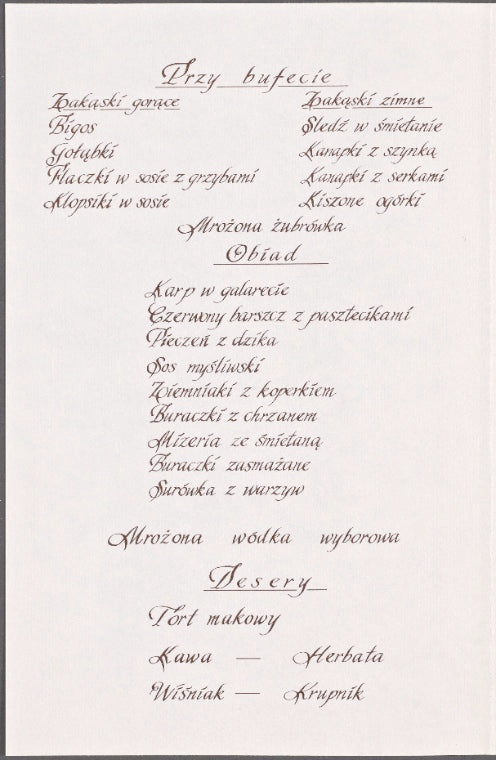 Przy bufecie
Zakąski gorące
Bigos
Gołąbki
Flaczki w sosie z grzybami
Klopsiki w sosie
Zakąski zimne
Śledź w śmietanie
Kanapki z szynką
Kanapki z serkami
Kiszone ogórki
Mrożona żubrówka
Obiad
Karp w galarecie
Czerwony barszcz z pasztecikami
Pieczeń z dzika
Sos myśliwski
Ziemniaki z koperkiem
Buraczki z chrzanem
Mizeria ze śmietaną
Buraczki zasmażane
Surówka z warzyw
Mrożona wódka wyborowa
Desery
Tort makowy
Kawa — Herbata
Wiśniak — Krupnik